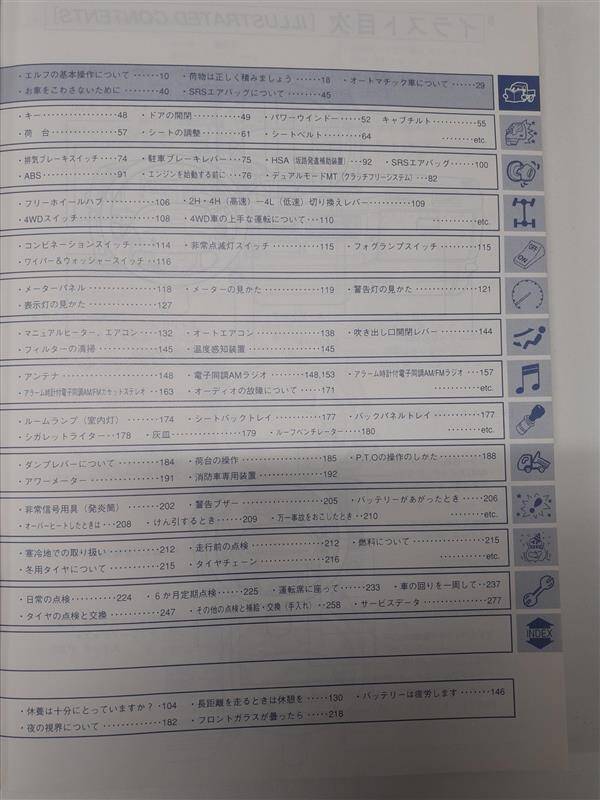 ・エルフの基本操作について‥‥‥10　・荷物は正しく積みましょう‥‥‥18　・オートマチック車について‥‥‥29
・お車をこわさないために‥‥‥40　・SRSエアバッグについて‥‥‥45
・キー‥‥‥48　・ドアの開閉‥‥‥49　・パワーウインドー‥‥‥52　キャブチルト‥‥‥55
・荷　台‥‥‥57　・シートの調整‥‥‥61　・シートベルト‥‥‥64　‥‥‥etc.
・排気ブレーキスイッチ‥‥‥74　・駐車ブレーキレバー‥‥‥75　・HSA（坂路発進補助装置）‥‥‥92　・SRSエアバッグ‥‥‥100
・ABS‥‥‥91　・エンジンを始動する前に‥‥‥76　・デュアルモードMT（クラッチフリーシステム）‥‥‥82
・フリーホイールハブ‥‥‥106　・2H・4H（高速）―4L（低速）切り換えレバー‥‥‥109
・4WDスイッチ‥‥‥108　・4WD車の上手な運転について‥‥‥110　‥‥‥etc.
・コンビネーションスイッチ‥‥‥114　・非常点滅灯スイッチ‥‥‥115　・フォグランプスイッチ‥‥‥115
・ワイパー＆ウォッシャースイッチ‥‥‥116
OFF
ON
・メーターパネル‥‥‥118　・メーターの見かた‥‥‥119　・警告灯の見かた‥‥‥121
・表示灯の見かた‥‥‥127
・マニュアルヒーター、エアコン‥‥‥132　・オートエアコン‥‥‥138　・吹き出し口開閉レバー‥‥‥144
・フィルターの清掃‥‥‥145　・温度感知装置‥‥‥145
・アンテナ‥‥‥148　・電子同調AMラジオ‥‥‥148,153　・アラーム時計付電子同調AM/FMラジオ‥‥‥157
・アラーム時計付電子同調AM/FMカセットステレオ‥‥‥163　・オーディオの故障について‥‥‥171　‥‥‥etc.
・ルームランプ（室内灯）‥‥‥174　・シートバックトレイ‥‥‥177　・バックパネルトレイ‥‥‥177
・シガレットライター‥‥‥178　・灰皿‥‥‥179　・ルーフベンチレーター‥‥‥180　‥‥‥etc.
・ダンプレバーについて‥‥‥184　・荷台の操作‥‥‥185　・P.T.Oの操作のしかた‥‥‥188
・アワーメーター‥‥‥191　・消防車専用装置‥‥‥192
・非常信号用具（発炎筒）‥‥‥202　・警告ブザー‥‥‥205　・バッテリーがあがったとき‥‥‥206
・オーバーヒートしたときは‥‥‥208　・けん引するとき‥‥‥209　・万一事故をおこしたとき‥‥‥210　‥‥‥etc.
・寒冷地での取り扱い‥‥‥212　・走行前の点検‥‥‥212　・燃料について‥‥‥215
・冬用タイヤについて‥‥‥215　・タイヤチェーン‥‥‥216　‥‥‥etc.
・日常の点検‥‥‥224　・6か月定期点検‥‥‥225　・運転席に座って‥‥‥233　・車の回りを一周して‥‥‥237
・タイヤの点検と交換‥‥‥247　・その他の点検と補給・交換（手入れ）‥‥‥258　・サービスデータ‥‥‥277
INDEX
・休養は十分にとっていますか？‥‥‥104　・長距離を走るときは休憩を‥‥‥130　・バッテリーは疲労します‥‥‥146
・夜の視界について‥‥‥182　・フロントガラスが曇ったら‥‥‥218